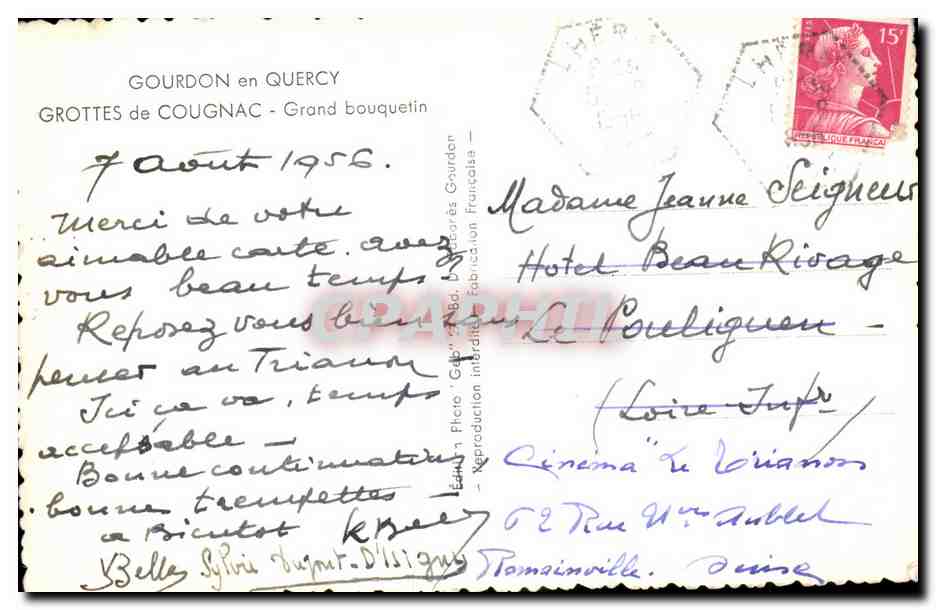 GOURDON en QUERCY
GROTTES de COUGNAC - Grand bouquetin
7 Août 1956.
Merci de votre
aimable carte. avez
vous beau temps.
Reposez vous bien sans
penser au Trianon
Ici ça va, temps
acceptable -
Bonne continuation
bonnes trempettes -
a Bientot
Belle Sylvie Dupont-D'Isigny
Édition Photo "Gelb" Bd. Gourdon
- Reproduction interdite - Fabrication Française -
CPAPHIL
LHER
15F
REPUBLIQUE FRANÇAI
Madame Jeanne Seigneur
Hotel Beau Rivage
Le Pouliguen -
(Loire Infre)
Cinéma "Le Trianon
62 Rue
Romainville. Seine